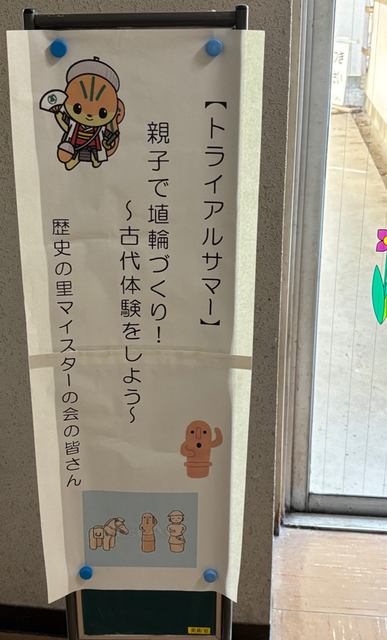 【トライアルサマー】
親子で埴輪づくり！
～古代体験をしよう～
歴史の里マイスターの会の皆さん